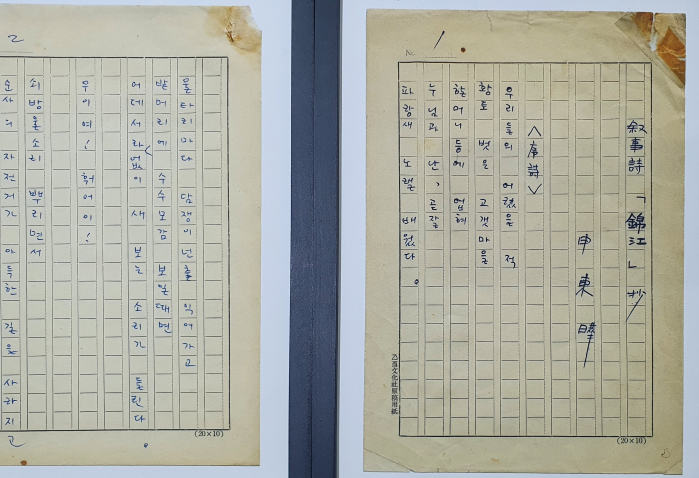 No. 1
敍事詩 「錦江」抄
申東曄
<序詩>
우리들의 어렸을 적
황토 벗은 고갯마을
할머니 등에 업혀
누님과 난, 곧잘
파랑새 노랠 배웠다.
乙酉文化社原稿用紙
(20×10)
2
울타리마다 담쟁이넌출 익어가고
밭머리에 수수모감 보일때면
어데서라 없이 새 보는 소리가 들린다.
우이여! 훠어이!
쇠방울소리 뿌리면서
순사의 자전거가 아득한 길을 사라지고
(20×10)